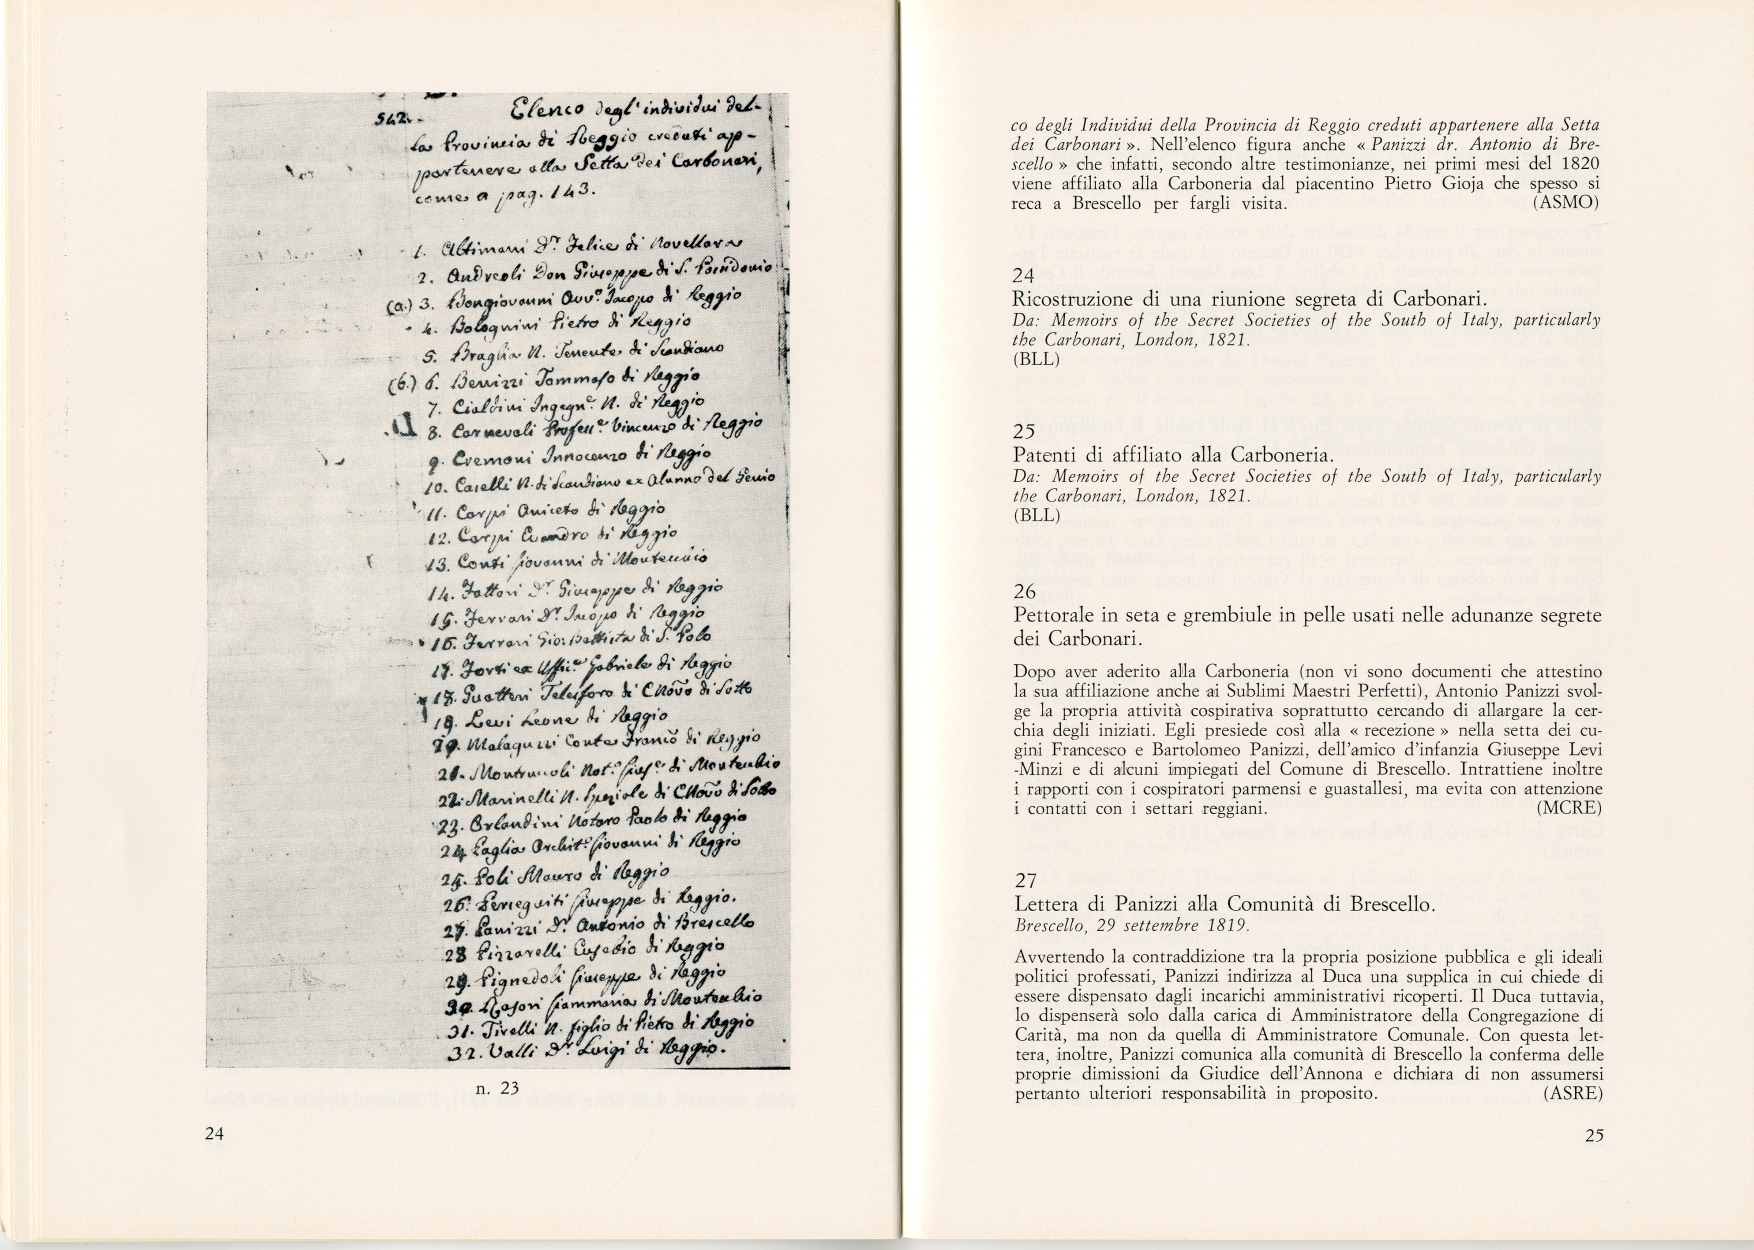 542. Elenco degl'individui del-
la Provincia di Reggio creduti ap-
partenere alla Setta dei Carbonari,
come a pag. 143.
1. Altimani Dr. Felice di Novellara
2. Andreoli Don Giuseppe di S. Possidonio
(a.) 3. Bongiovanni Avvo. Jacopo di Reggio
4. Bolognini Pietro di Reggio
5. Braglia N. Tenente di Scandiano
(b.) 6. Benizzi Tommaso di Reggio
7. Cialdini Ingegne. N. di Reggio
8. Carnevali Profess.e Vincenzo di Reggio
9. Cremoni Innocenzo di Reggio
10. Caselli N. di Scandiano ex Alunno del Genio
11. Carpi Aniceto di Reggio
12. Carpi Evandro di Reggio
13. Conti Giovanni di Montecchio
14. Fattori Dr. Giuseppe di Reggio
15. Ferrari Dr. Jacopo di Reggio
16. Ferrari Gio: Battista di S. Polo
17. Forti ex Uffic.e Gabriele di Reggio
18. Guatteri Telesforo di C.Novo di Sotto
19. Levi Leone di Reggio
20. Malaguzzi Conte Franco di Reggio
21. Montruccoli Not.o Gius.e di Montecchio
22. Marinelli N. Speziale di C.Novo di Sotto
23. Orlandini Notaro Paolo di Reggio
24. Paglia Archit.o Giovanni di Reggio
25. Poli Mauro di Reggio
26. Perseguiti Giuseppe di Reggio.
27. Panizzi Dr. Antonio di Brescello
28 Pizzarelli Eusebio di Reggio
29. Pignedoli Giuseppe di Reggio
30. Rasori Giammaria di Montecchio
31. Tirelli N. figlio di Pietro di Reggio
32. Valli Dr. Luigi di Reggio.
n. 23
24
co degli Individui della Provincia di Reggio creduti appartenere alla Setta
dei Carbonari ». Nell'elenco figura anche « Panizzi dr. Antonio di Bre-
scello » che infatti, secondo altre testimonianze, nei primi mesi del 1820
viene affiliato alla Carboneria dal piacentino Pietro Gioja che spesso si
reca a Brescello per fargli visita. (ASMO)
24
Ricostruzione di una riunione segreta di Carbonari.
Da: Memoirs of the Secret Societies of the South of Italy, particularly
the Carbonari, London, 1821.
(BLL)
25
Patenti di affiliato alla Carboneria.
Da: Memoirs of the Secret Societies of the South of Italy, particularly
the Carbonari, London, 1821.
(BLL)
26
Pettorale in seta e grembiule in pelle usati nelle adunanze segrete
dei Carbonari.
Dopo aver aderito alla Carboneria (non vi sono documenti che attestino
la sua affiliazione anche ai Sublimi Maestri Perfetti), Antonio Panizzi svol-
ge la propria attività cospirativa soprattutto cercando di allargare la cer-
chia degli iniziati. Egli presiede così alla « recezione » nella setta dei cu-
gini Francesco e Bartolomeo Panizzi, dell'amico d'infanzia Giuseppe Levi
-Minzi e di alcuni impiegati del Comune di Brescello. Intrattiene inoltre
i rapporti con i cospiratori parmensi e guastallesi, ma evita con attenzione
i contatti con i settari reggiani. (MCRE)
27
Lettera di Panizzi alla Comunità di Brescello.
Brescello, 29 settembre 1819.
Avvertendo la contraddizione tra la propria posizione pubblica e gli ideali
politici professati, Panizzi indirizza al Duca una supplica in cui chiede di
essere dispensato dagli incarichi amministrativi ricoperti. Il Duca tuttavia,
lo dispenserà solo dalla carica di Amministratore della Congregazione di
Carità, ma non da quella di Amministratore Comunale. Con questa let-
tera, inoltre, Panizzi comunica alla comunità di Brescello la conferma delle
proprie dimissioni da Giudice dell'Annona e dichiara di non assumersi
pertanto ulteriori responsabilità in proposito. (ASRE)
25